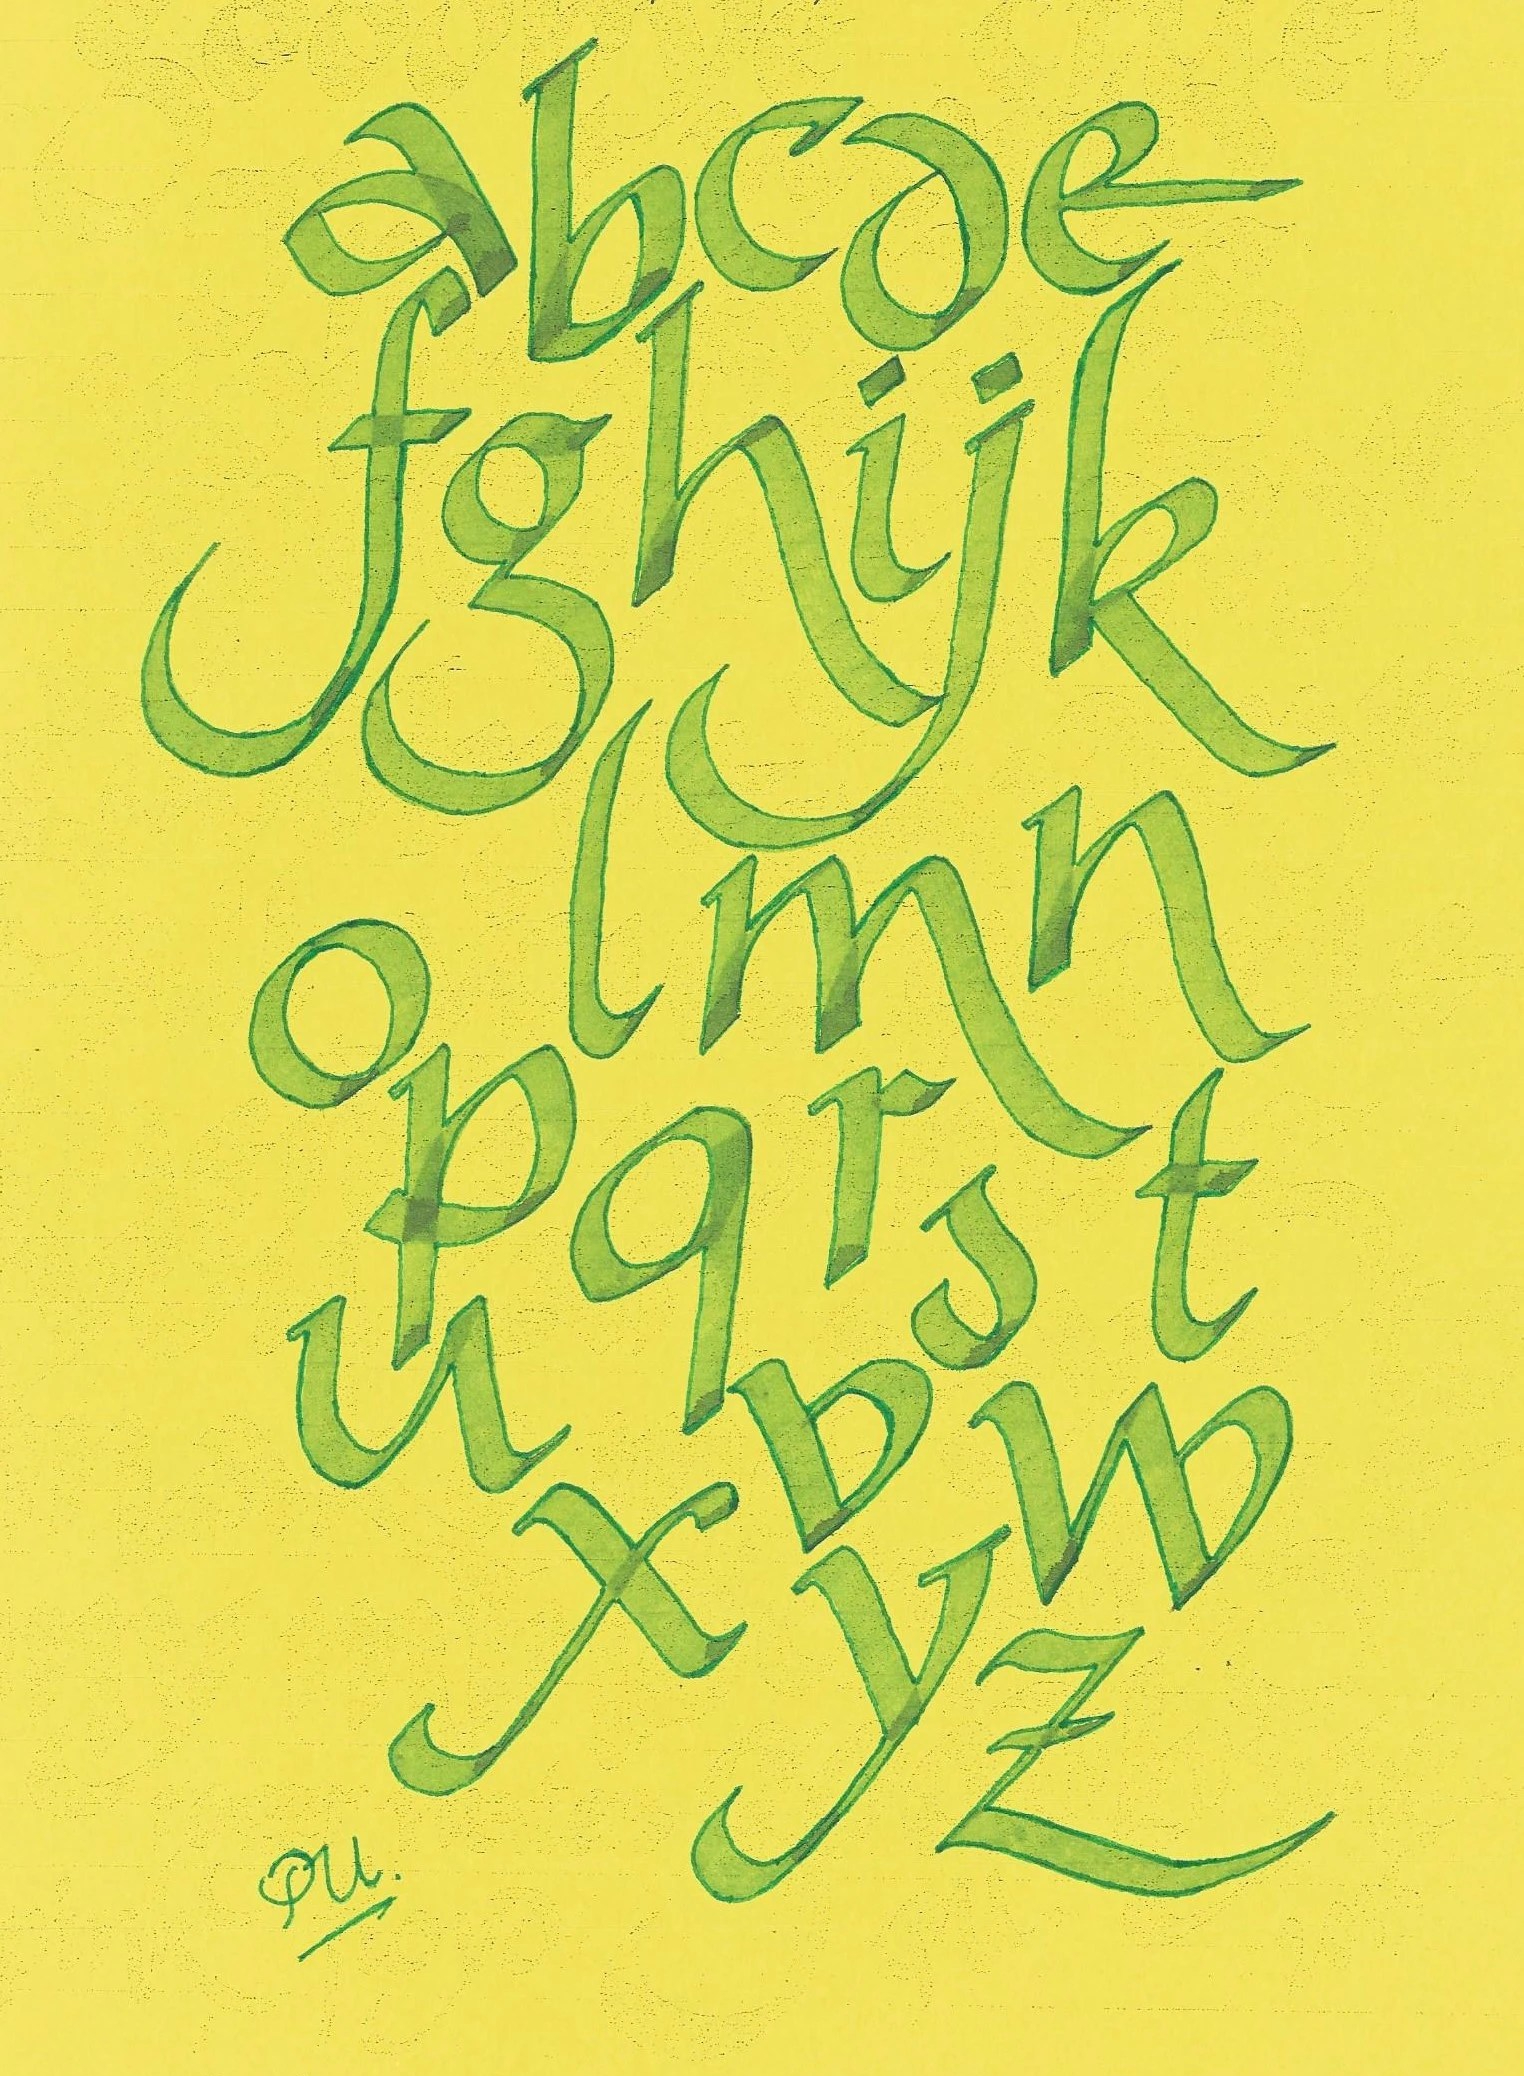 abcde
fghijk
lmn
opqrst
uvw
xyz
PU.